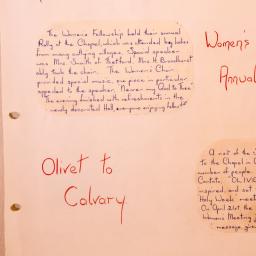 The Womens Fellowship held their annual
Rally at the Chapel, which was attended by ladies
from many outlying villages. Special speaker
was Mrs. Smith of Thetford. Mrs. H. Broadhurst
ably took the chair. The Women's Choir
provided special music, one piece in particular
appealed to the speaker, "Nearer my God to Thee"
The evening finished with refreshments in the
newly decorated Hall, everyone enjoying fellowship
Women's
Annual
Olivet to
Calvary.
A visit of the
To the Chapel in
number of people
Cantata, "OLIVE
inspired, and set
Holy Week meet
On April 21st the
Womens Meeting
message give